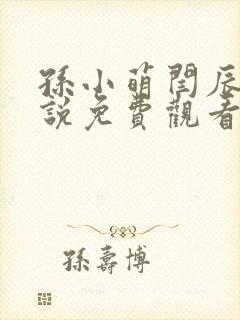 孫小萌閆辰
說免費觀看
孫壽博